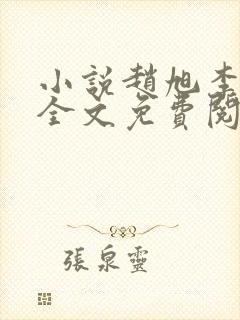 小說趙旭李
全文免費閱
張泉靈